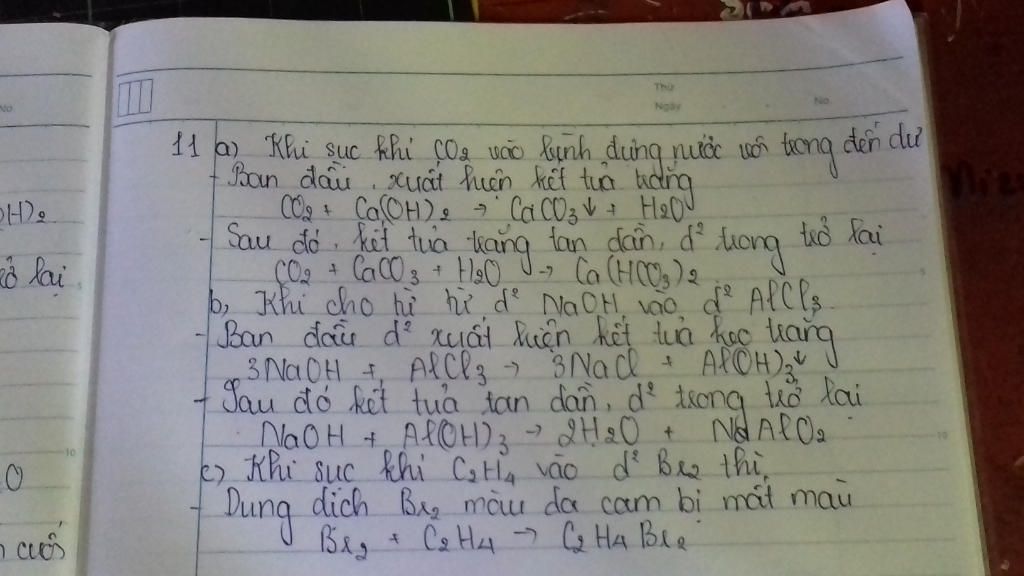 Thứ
Ngày
No
No
11 a) Khi sục khí CO2 vào bình đựng nước vôi trong đến dư
- Ban đầu, xuất hiện kết tủa trắng
CO2 + Ca(OH)2 → CaCO3↓ + H2O
- Sau đó, kết tủa trắng tan dần, d² trong trở lại
CO2 + CaCO3 + H2O → Ca(HCO3)2
b, Khi cho từ từ d² NaOH vào d² AlCl3
- Ban đầu d² xuất hiện kết tủa keo trắng
3NaOH + AlCl3 → 3NaCl + Al(OH)3↓
- Sau đó kết tủa tan dần, d² trong trở lại
NaOH + Al(OH)3 → 2H2O + NaAlO2
c) Khi sục khí C2H4 vào d² Br2 thì
- Dung dịch Br2 màu da cam bị mất màu
Br2 + C2H4 → C2H4Br2
OH)2
trở lại
O
cuối
5
10
10